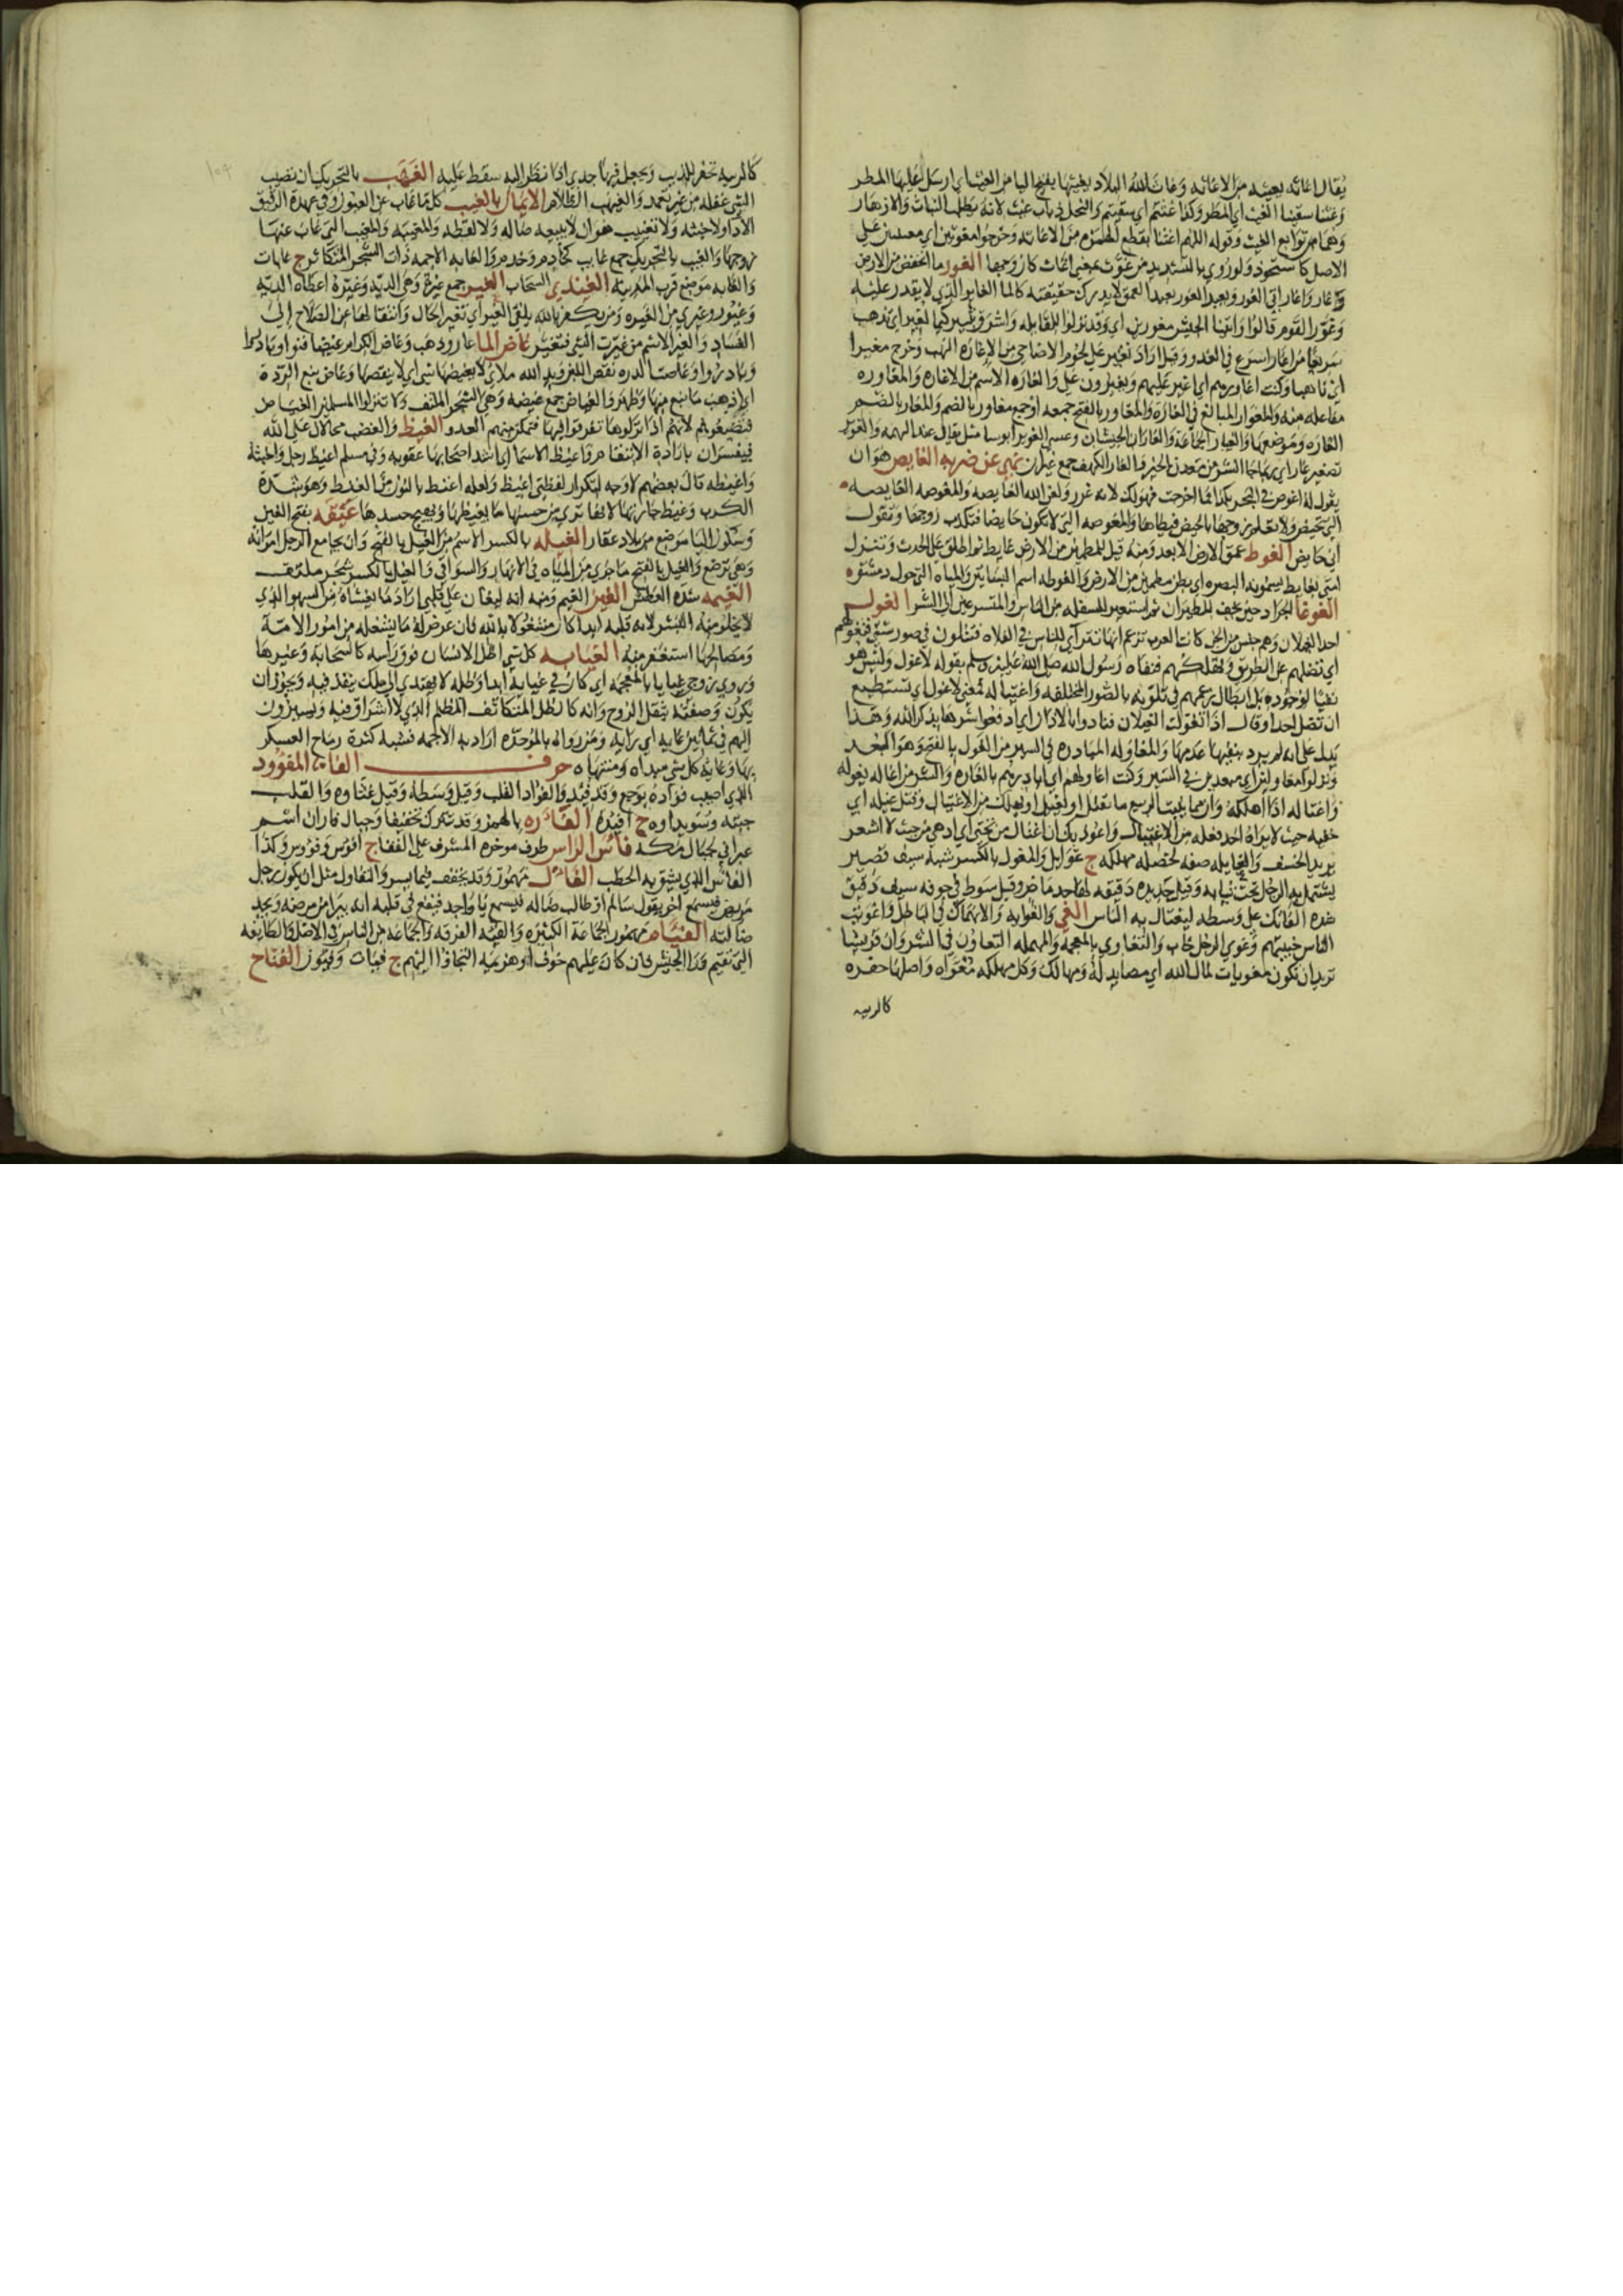 يقال اغاثه يغيثه من الاغاثه وغاث الله البلاد يغيثها بفتح اليا من الغيث اي ارسل عليها المطر
وغثنا سقينا الغيث اي المطر وكذا غثتم اي سقيتم والنحل ذباب غيث لانه يطلب النبات والازهار
وهما من توابع الغيث وقوله اللهم اغثنا بقطع الهمزه من الاغاثه وخرجوا مغوثين اي معينين على
الاصل كاستحوذ ولو روي بالتشديد من غوث بمعنى اغاث كان وجيها الغور ما انخفض من الارض
وغار واغار اتى الغور وبعيد الغور بعيد العمق لا يدرك حقيقته كالما الغاير الذي لا يقدر عليه
وغور القوم قالوا واتينا الجيش مغورين اي وقد نزلوا للقايله واشرق ثبير كيما نغير اي نذهب
سريعا من اغار اسرع في العدو وقيل اراد نغير على لحوم الاضاحي من الاغاره النهب وخرج مغيرا
اي ناهبا وكنت اغاورهم اي اغير عليهم ويغيرون علي والغاره الاسم من الاغاره والمغاوره
مفاعله منه والمغوار المبالغ في الغاره والمغاور بالفتح جمعه او جمع مغاور بالضم والمغار بالضم
الغاره وموضعها والغار الجماعه والغاران الجيشان وعسى الغوير ابوسا مثل يقال عند التهمه والغوير
تصغير غار اي ربما جا الشر من معدن الخير والغار الكهف جمع غيران نهى عن ضربه الغايص هو ان
يقول له اغوص في البحر بكذا فما اخرجت فهو لك لانه غرر ولعن الله الغايصه والمغوصه الغايصه
التي تحيض ولا تعلم زوجها بالحيض فيطاها والمغوصه التي لا تكون حايضا فتكذب زوجها وتقول
اني حايض الغوط عمق الارض الابعد ومنه قيل للمطمين من الارض غايط ثم اطلق على الحدث وتنزل
امتي بغايط يسمونه البصره اي بطن مطمين من الارض والغوطه اسم البساتين والمياه التي حول دمشق
الغوغا الجراد حين يخف للطيران ثم استعير للسفله من الناس والمتسرعين الى الشر الغول
احد الغيلان وهم جنس من الجن كانت العرب تزعم انها تتراي للناس في الفلاه فتتلون في صور شتى فتغولهم
اي تضلهم عن الطريق وتهلكهم فنفاه رسول الله صلى الله عليه وسلم بقوله لا غول وليس هو
نفيا لوجوده بل ابطال زعمهم في تلونه بالصور المختلفه واغتياله فمعنى لا غول اي لا تستطيع
ان تضل احدا وقال اذا تغولت الغيلان فنادوا بالاذان اي ادفعوا شرها بذكر الله وهذا
يدل على انه لم يرد بنفيها عدمها والمغاوله المبادره في السير من الغول بالفتح وهو البعد
ونزلوا مغاولين اي مبعدين في السير وكنت اغاولهم اي ابادرهم بالغاره والشر من غاله يغوله
واغتاله اذا اهلكه وان مما ينبت الربيع ما يقتل او يغيل او يهلك من الاغتيال وقتل غيله اي
خفيه حيث لا يراه احد فعله من الاغتيال واعوذ بك ان اغتال من تحتي اي ادهى من حيث لا اشعر
يريد الخسف والغايله صفه لخصله مهلكه ج غوايل والمغول بالكسر شبه سيف قصير
يشتمل به الرجل تحت ثيابه وقيل حديده دقيقه لها حد ماض وقيل سوط في جوفه سيف دقيق
يشده الفاتك على وسطه ليغتال به الناس الغي والغوايه والانهماك في الباطل واغويت
الناس خيبتهم وغوي الرجل خاب والتغاوي بالمعجمه والمهمله التعاون في الشر وان قريشا
تريد ان تكون مغويات لمال الله اي مصايد له ومهالك وكل مهلكه مغواه واصلها حفره
كالزبيه
كالزبيه تحفر للذيب ويجعل فيها جدي اذا نظر اليه سقط عليه الغهب بالتحريك ان تصيب
الشي غفله من غير تعمد والغيهب الظلام الايمان بالغيب كل ما غاب عن العيون وفي عهدة الرقيق
لا دا ولا خبثه ولا تغييب هو ان لا يبيعه ضاله ولا لقطه والمغيبه والمغيب التي غاب عنها
زوجها والغيب بالتحريك جمع غايب كخادم وخدم والغابه الاجمه ذات الشجر المتكاثف ج غابات
والغابه موضع قرب المدينه الغيذى السحاب الغير جمع غيرة وهي الديه وغيره اعطاه الديه
وغيور وغيرى من الغيره ومن يكفر بالله يلقى الغير اي تغير الحال وانتقالها عن الصلاح الى
الفساد والغير الاسم من غيرت الشي فتغير غاض الما غار وذهب وغاض الكرام غيضا فنوا وبادوا
وغاضت الدره نقص اللبن ويد الله ملأى لا يغيضها شي اي لا ينقصها وغاض نبع الردة
اي اذهب ما نبع منها وظهر والغياض جمع غيضه وهي الشجر الملتف ولا تنزلوا المسلمين الغياض
فتضيعوهم لانهم اذا نزلوها تفرقوا فيها فتمكن منهم العدو الغيظ والغضب محالان على الله
فيفسران بارادة الانتقام واغيظ الاسما اي اشد اصحابها عقوبه وفي مسلم اغيظ رجل واخبثه
واغيظه قال بعضهم لا وجه لتكرار لفظتي اغيظ ولعله اغنط بالنون من الغنط وهو شدة
الكرب وغيظ جارتها لانها ترى من حسنها ما يغيظها ويهيج حسدها غيقه بفتح الغين
وسكون اليا موضع من بلاد غفار الغيله بالكسر الاسم من الغيل بالفتح وان يجامع الرجل امراته
وهي ترضع والغيل بالفتح ما جرى من المياه في الانهار والسواقي والغيل بالكسر شجر ملتف
الغيمه شدة العطش الغين الغيم ومنه انه ليغان على قلبي اراد ما يغشاه من السهو الذي
لا يخلو منه البشر لان قلبه ابدا كان مشغولا بالله فان عرض له ما يشغله من امور الامة
ومصالحها استغفر منه الغيايه كل شي اظل الانسان فوق راسه كالسحابه وغيرها
وروي زوجي غياياء بالمعجمه اي كانه في غيايه ابدا وظلمه لا يهتدي الى مسلك ينفذ فيه ويجوز ان
يكون وصفته بثقل الروح وانه كالظل المتكاثف المظلم الذي لا اشراق فيه ويسيرون
اليهم في ثمانين غايه اي رايه ومن رواه بالموحده اراد به الاجمه فشبه كثرة رماح العسكر
بها وغاية كل شي مداه ومنتهاه حرف الفاء المفؤود
الذي اصيب فواده بوجع وقد فئد والفواد القلب وقيل وسطه وقيل غشاوه والقلب
حبته وسويداوه ج افئده الفاره بالهمز وقد تترك تخفيفا وجبال فاران اسم
عبراني لجبال مكة فاس الراس طرف موخره المشرف على القفا ج افوس وفوس وكذا
الفاس الذي يشق به الحطب الفال مهموز وقد يخفف فيما يسر والتفاول مثل ان يكون رجل
مريض فيسمع اخر يقول سالم او طالب ضاله فيسمع يا واجد فيقع في قلبه انه يبرا من مرضه ويجد
ضالته الفئام مهموز الجماعة الكثيره والفئه الفرقه والجماعه من الناس في الاصل والطايفه
التي تقيم ورا الجيش فان كان عليهم خوف او هزيمه التجاوا اليهم ج فيات وفيون الفتاح